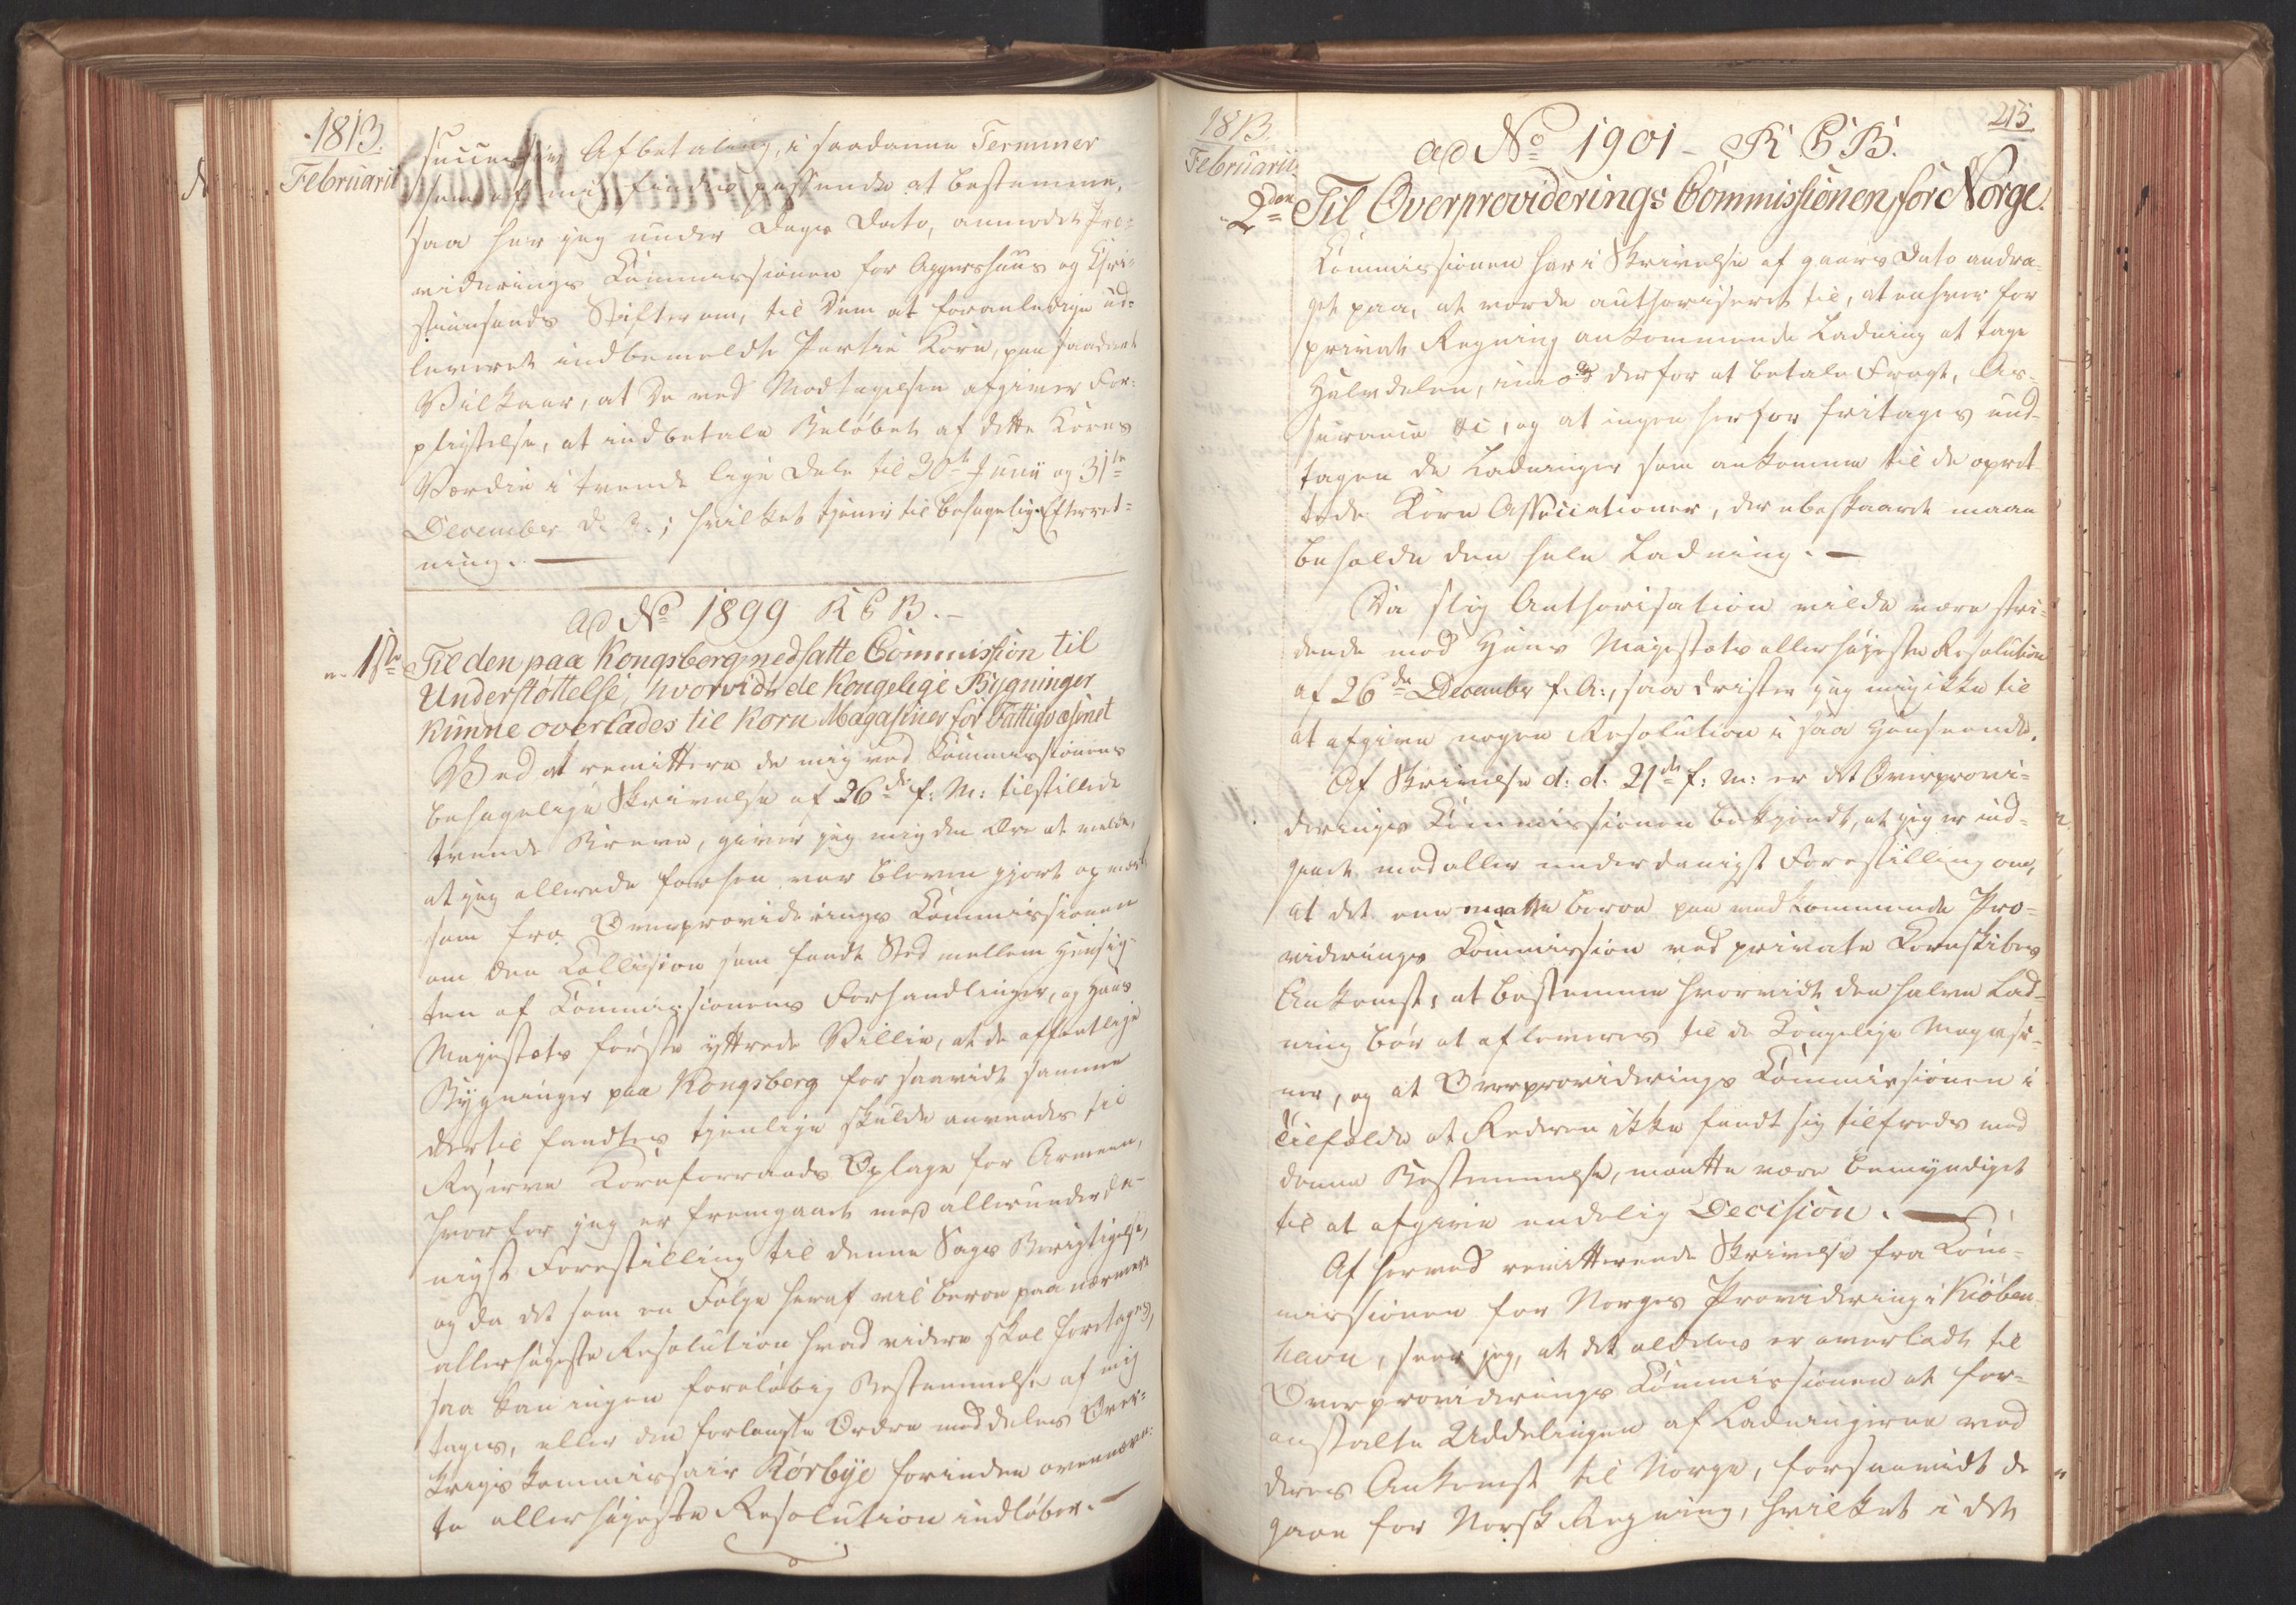 1813.
Februarii
successiv Afbetaling, i saadanne Terminer
som af mig findes passende at bestemme,
saa har jeg under Dags Dato, anmodet Pro-
viderings Commissionen for Aggershuus og Chri-
stiansands Stifter om, til Dem at foranledige ud-
leveret indbemeldte Partie Korn, paa saadant
Vilkaar, at De ved Modtagelsen afgiver For-
pligtelse, at indbetale Beløbet af dette Korns
Værdie i tvende lige Dele til 30te Junii og 31te
December d. A.; hvilket tjener til behagelig Efterret-
ning. —
ad No 1899 K C B. —
1ste Til den paa Kongsberg nedsatte Commission til
Understøttelse, hvorvidt de Kongelige Bygninger
kunne overlades til Korn Magasiner for Fattigvæsenet
Ved at remittere de mig ved Commissionens
behagelige Skrivelse af 26de f: M: tilstillede
tvende Breve, giver jeg mig den Ære at melde,
at jeg allerede forhen var bleven gjort opmærk-
som fra Overproviderings Commissionen
om den Collision som fandt Sted mellem Hensig-
ten af Commissionens Forhandlinger, og Hans
Majestæts første yttrede Villie, at de offentlige
Bygninger paa Kongsberg for saavidt samme
dertil fandtes tjenlige skulde anvendes til
Reserve Kornforraads Oplage for Armeen,
hvorfor jeg er fremgaaet med allerunderda-
nigst Forestilling til denne Sags Berigtigelse,
og da det som en Følge heraf vil beroe paa nærmere
allerhøjeste Resolution hvad videre skal foretages,
saa kan ingen foreløbig Bestemmelse af mig
tages, eller den forlangte Ordre meddeles Over-
krigskommissair Kørbye forinden ovennævn-
te allerhøjeste Resolution indløber. —
1813.
Februarii
215.
ad No 1901 – K C B.
2den Til Overproviderings Commissionen for Norge.
Commissionen har i Skrivelse af gaars Dato andra-
get paa, at vorde authoriseret til, at enhver for
privat Regning ankommende Ladning at tage
Halvdelen, imod derfor at betale Fragt, As-
surance &c, og at ingen herfor fritages und-
tagen de Ladninger som ankomme til de opret-
tede Korn Associationer, der ubeskaaret maae
beholde den hele Ladning. —
Da slig Authorisation vilde være stri-
dende mod Hans Majestæts allerhøjeste Resolution
af 26de December f. A:, saa drister jeg mig ikke til
at afgive nogen Resolution i saa Henseende.
Af Skrivelse d: d. 21de f: M: er det Overprovi-
derings Commissionen bekjendt, at jeg er ind-
gaaet med aller underdanigst Forestilling om,
at det ene maatte beroe paa vedkommende Pro-
viderings Commission ved private Kornskibes
Ankomst, at bestemme hvorvidt den halve Lad-
ning bør at afleveres til de Kongelige Magasi-
ner, og at Overproviderings Commissionen i
Tilfælde at Rederen ikke fandt sig tilfreds med
denne Bestemmelse, maatte være bemyndiget
til at afgive endelig Decision. —
Af herved remitterende Skrivelse fra Com-
missionen for Norges Providering i Kiøben-
havn, seer jeg, at det aldeles er overladt til
Overproviderings Commissionen at for-
anstalte Uddelingen af Ladningerne ved
deres Ankomst til Norge, forsaavidt de
gaae for Norsk Regning, hvilket i det